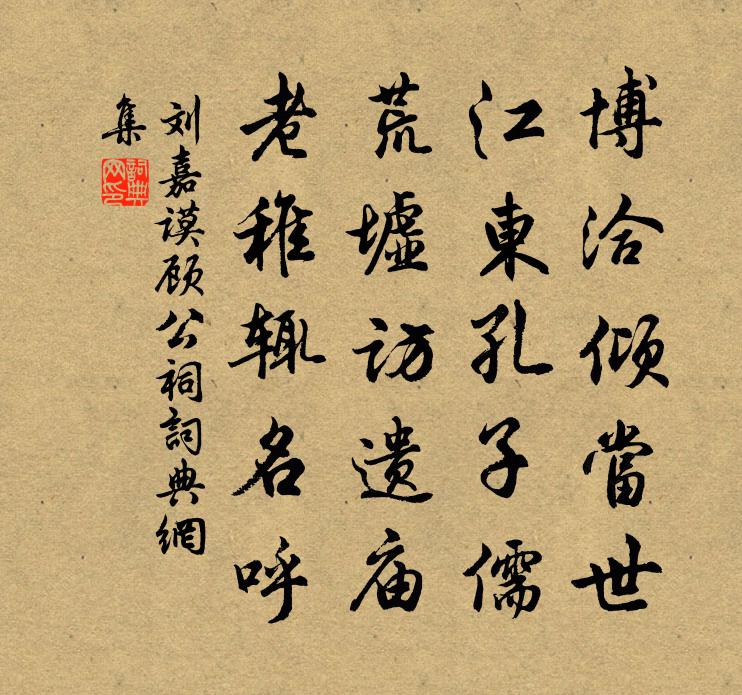 博洽倾當世
江東孔子儒
荒墟访遗庙
老稚辄名呼
刘嘉谟顾公祠詞典網
集
詞典网印